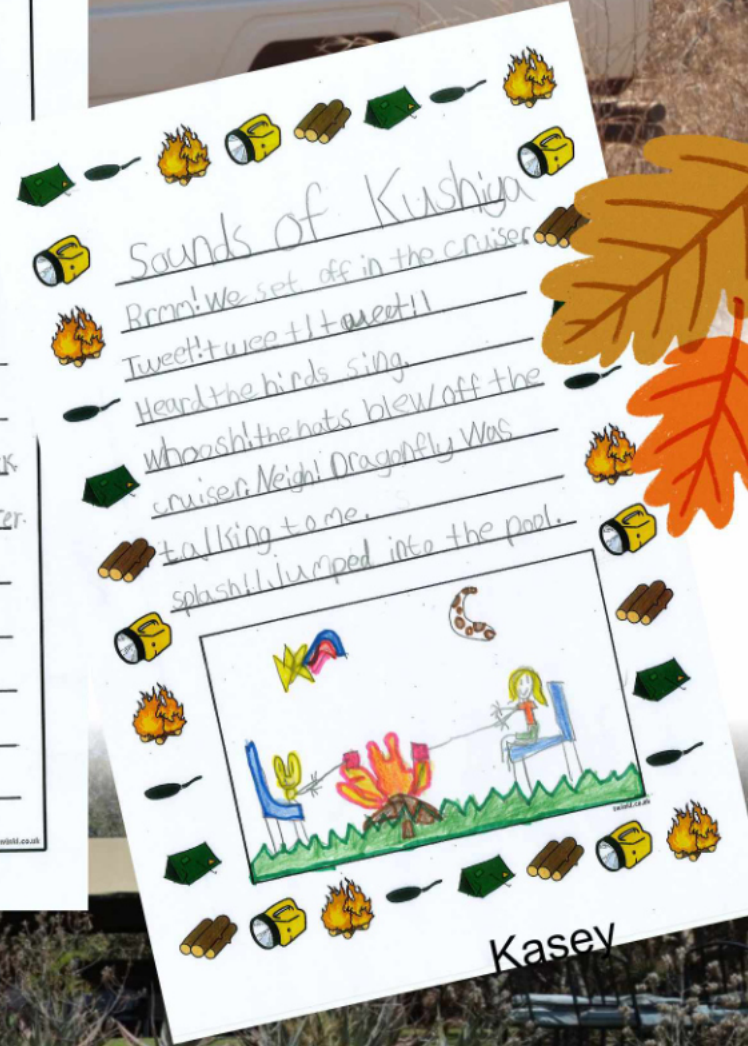 Sounds of Kushiya
Brmm! We set off in the cruiser
Tweet!tweet!tweet!!
Heard the birds sing.
whoosh!the hats blew off the
cruiser. Neigh! Dragonfly Was
talking to me.
splash!!Jumped into the pool.
twinkl.co.uk
Kasey
er.
twinkl.co.uk